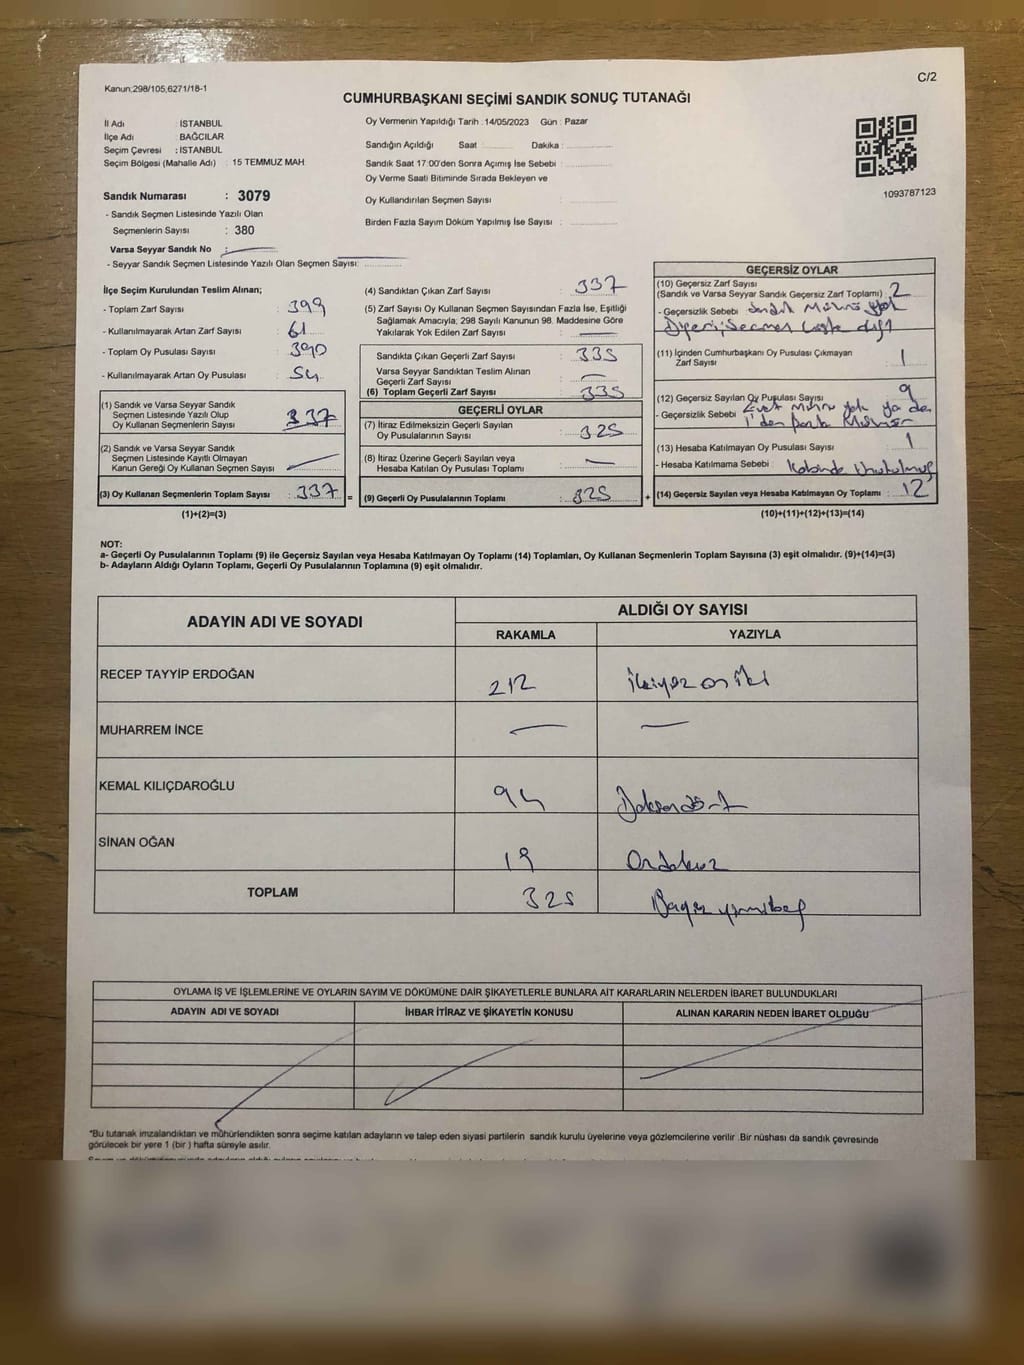 Kanun;298/105,6271/18-1
C/2
CUMHURBAŞKANI SEÇİMİ SANDIK SONUÇ TUTANAĞI
İl Adı : İSTANBUL
İlçe Adı : BAĞCILAR
Seçim Çevresi : İSTANBUL
Seçim Bölgesi (Mahalle Adı) : 15 TEMMUZ MAH
Sandık Numarası : 3079
- Sandık Seçmen Listesinde Yazılı Olan
Seçmenlerin Sayısı : 380
Varsa Seyyar Sandık No :
- Seyyar Sandık Seçmen Listesinde Yazılı Olan Seçmen Sayısı:
Oy Vermenin Yapıldığı Tarih : 14/05/2023 Gün : Pazar
Sandığın Açıldığı Saat Dakika :
Sandık Saat 17:00'den Sonra Açımış İse Sebebi :
Oy Verme Saati Bitiminde Sırada Bekleyen ve
Oy Kullandırılan Seçmen Sayısı :
Birden Fazla Sayım Döküm Yapılmış İse Sayısı :
1093787123
İlçe Seçim Kurulundan Teslim Alınan;
- Toplam Zarf Sayısı : 399
- Kullanılmayarak Artan Zarf Sayısı : 61
- Toplam Oy Pusulası Sayısı : 390
- Kullanılmayarak Artan Oy Pusulası : 54
(1) Sandık ve Varsa Seyyar Sandık
Seçmen Listesinde Yazılı Olup
Oy Kullanan Seçmenlerin Sayısı : 337
(2) Sandık ve Varsa Seyyar Sandık
Seçmen Listesinde Kayıtlı Olmayan
Kanun Gereği Oy Kullanan Seçmen Sayısı :
(3) Oy Kullanan Seçmenlerin Toplam Sayısı : 337 =
(1)+(2)=(3)
(4) Sandıktan Çıkan Zarf Sayısı : 337
(5) Zarf Sayısı Oy Kullanan Seçmen Sayısından Fazla İse, Eşitliği
Sağlamak Amacıyla; 298 Sayılı Kanunun 98. Maddesine Göre
Yakılarak Yok Edilen Zarf Sayısı :
Sandıkta Çıkan Geçerli Zarf Sayısı : 335
Varsa Seyyar Sandıktan Teslim Alınan
Geçerli Zarf Sayısı :
(6) Toplam Geçerli Zarf Sayısı : 335
GEÇERLİ OYLAR
(7) İtiraz Edilmeksizin Geçerli Sayılan
Oy Pusulalarının Sayısı : 325
(8) İtiraz Üzerine Geçerli Sayılan veya
Hesaba Katılan Oy Pusulası Toplamı :
(9) Geçerli Oy Pusulalarının Toplamı : 325 +
GEÇERSİZ OYLAR
(10) Geçersiz Zarf Sayısı
(Sandık ve Varsa Seyyar Sandık Geçersiz Zarf Toplamı) : 2
- Geçersizlik Sebebi : Sandık Mührü yok
Diğeri; Seçmen Liste dışı
(11) İçinden Cumhurbaşkanı Oy Pusulası Çıkmayan
Zarf Sayısı : 1
(12) Geçersiz Sayılan Oy Pusulası Sayısı : 9
- Geçersizlik Sebebi : Evet Mührü yok ya da
1'den fazla Mühür
(13) Hesaba Katılmayan Oy Pusulası Sayısı : 1
- Hesaba Katılmama Sebebi : Kabinde Unutulmuş
(14) Geçersiz Sayılan veya Hesaba Katılmayan Oy Toplamı : 12
(10)+(11)+(12)+(13)=(14)
NOT:
a- Geçerli Oy Pusulalarının Toplamı (9) ile Geçersiz Sayılan veya Hesaba Katılmayan Oy Toplamı (14) Toplamları, Oy Kullanan Seçmenlerin Toplam Sayısına (3) eşit olmalıdır. (9)+(14)=(3)
b- Adayların Aldığı Oyların Toplamı, Geçerli Oy Pusulalarının Toplamına (9) eşit olmalıdır.
ADAYIN ADI VE SOYADI ALDIĞI OY SAYISI
RAKAMLA YAZIYLA
RECEP TAYYİP ERDOĞAN 212 ikiyüz on iki
MUHARREM İNCE
KEMAL KILIÇDAROĞLU 94 Doksandört
SİNAN OĞAN 19 Ondokuz
TOPLAM 325
OYLAMA İŞ VE İŞLEMLERİNE VE OYLARIN SAYIM VE DÖKÜMÜNE DAİR ŞİKAYETLERLE BUNLARA AİT KARARLARIN NELERDEN İBARET BULUNDUKLARI
ADAYIN ADI VE SOYADI İHBAR İTİRAZ VE ŞİKAYETİN KONUSU ALINAN KARARIN NEDEN İBARET OLDUĞU
*Bu tutanak imzalandıktan ve mühürlendikten sonra seçime katılan adayların ve talep eden siyasi partilerin sandık kurulu üyelerine veya gözlemcilerine verilir .Bir nüshası da sandık çevresinde
görülecek bir yere 1 (bir ) hafta süreyle asılır.